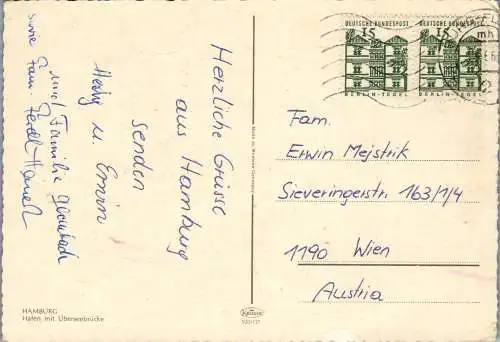 Herzliche Grüsse
aus Hamburg
senden
Herby u. Erwin
und Familie
sowie
Fam.
HAMBURG
Hafen mit Überseebrücke
Krüger
DEUTSCHE BUNDESPOST
15
BERLIN-TEGEL
DEUTSCHE BUNDESPOST
15
BERLIN-TEGEL
Fam.
Erwin Mejstrik
Sieveringerstr. 163/1/4
1190 Wien
Austria